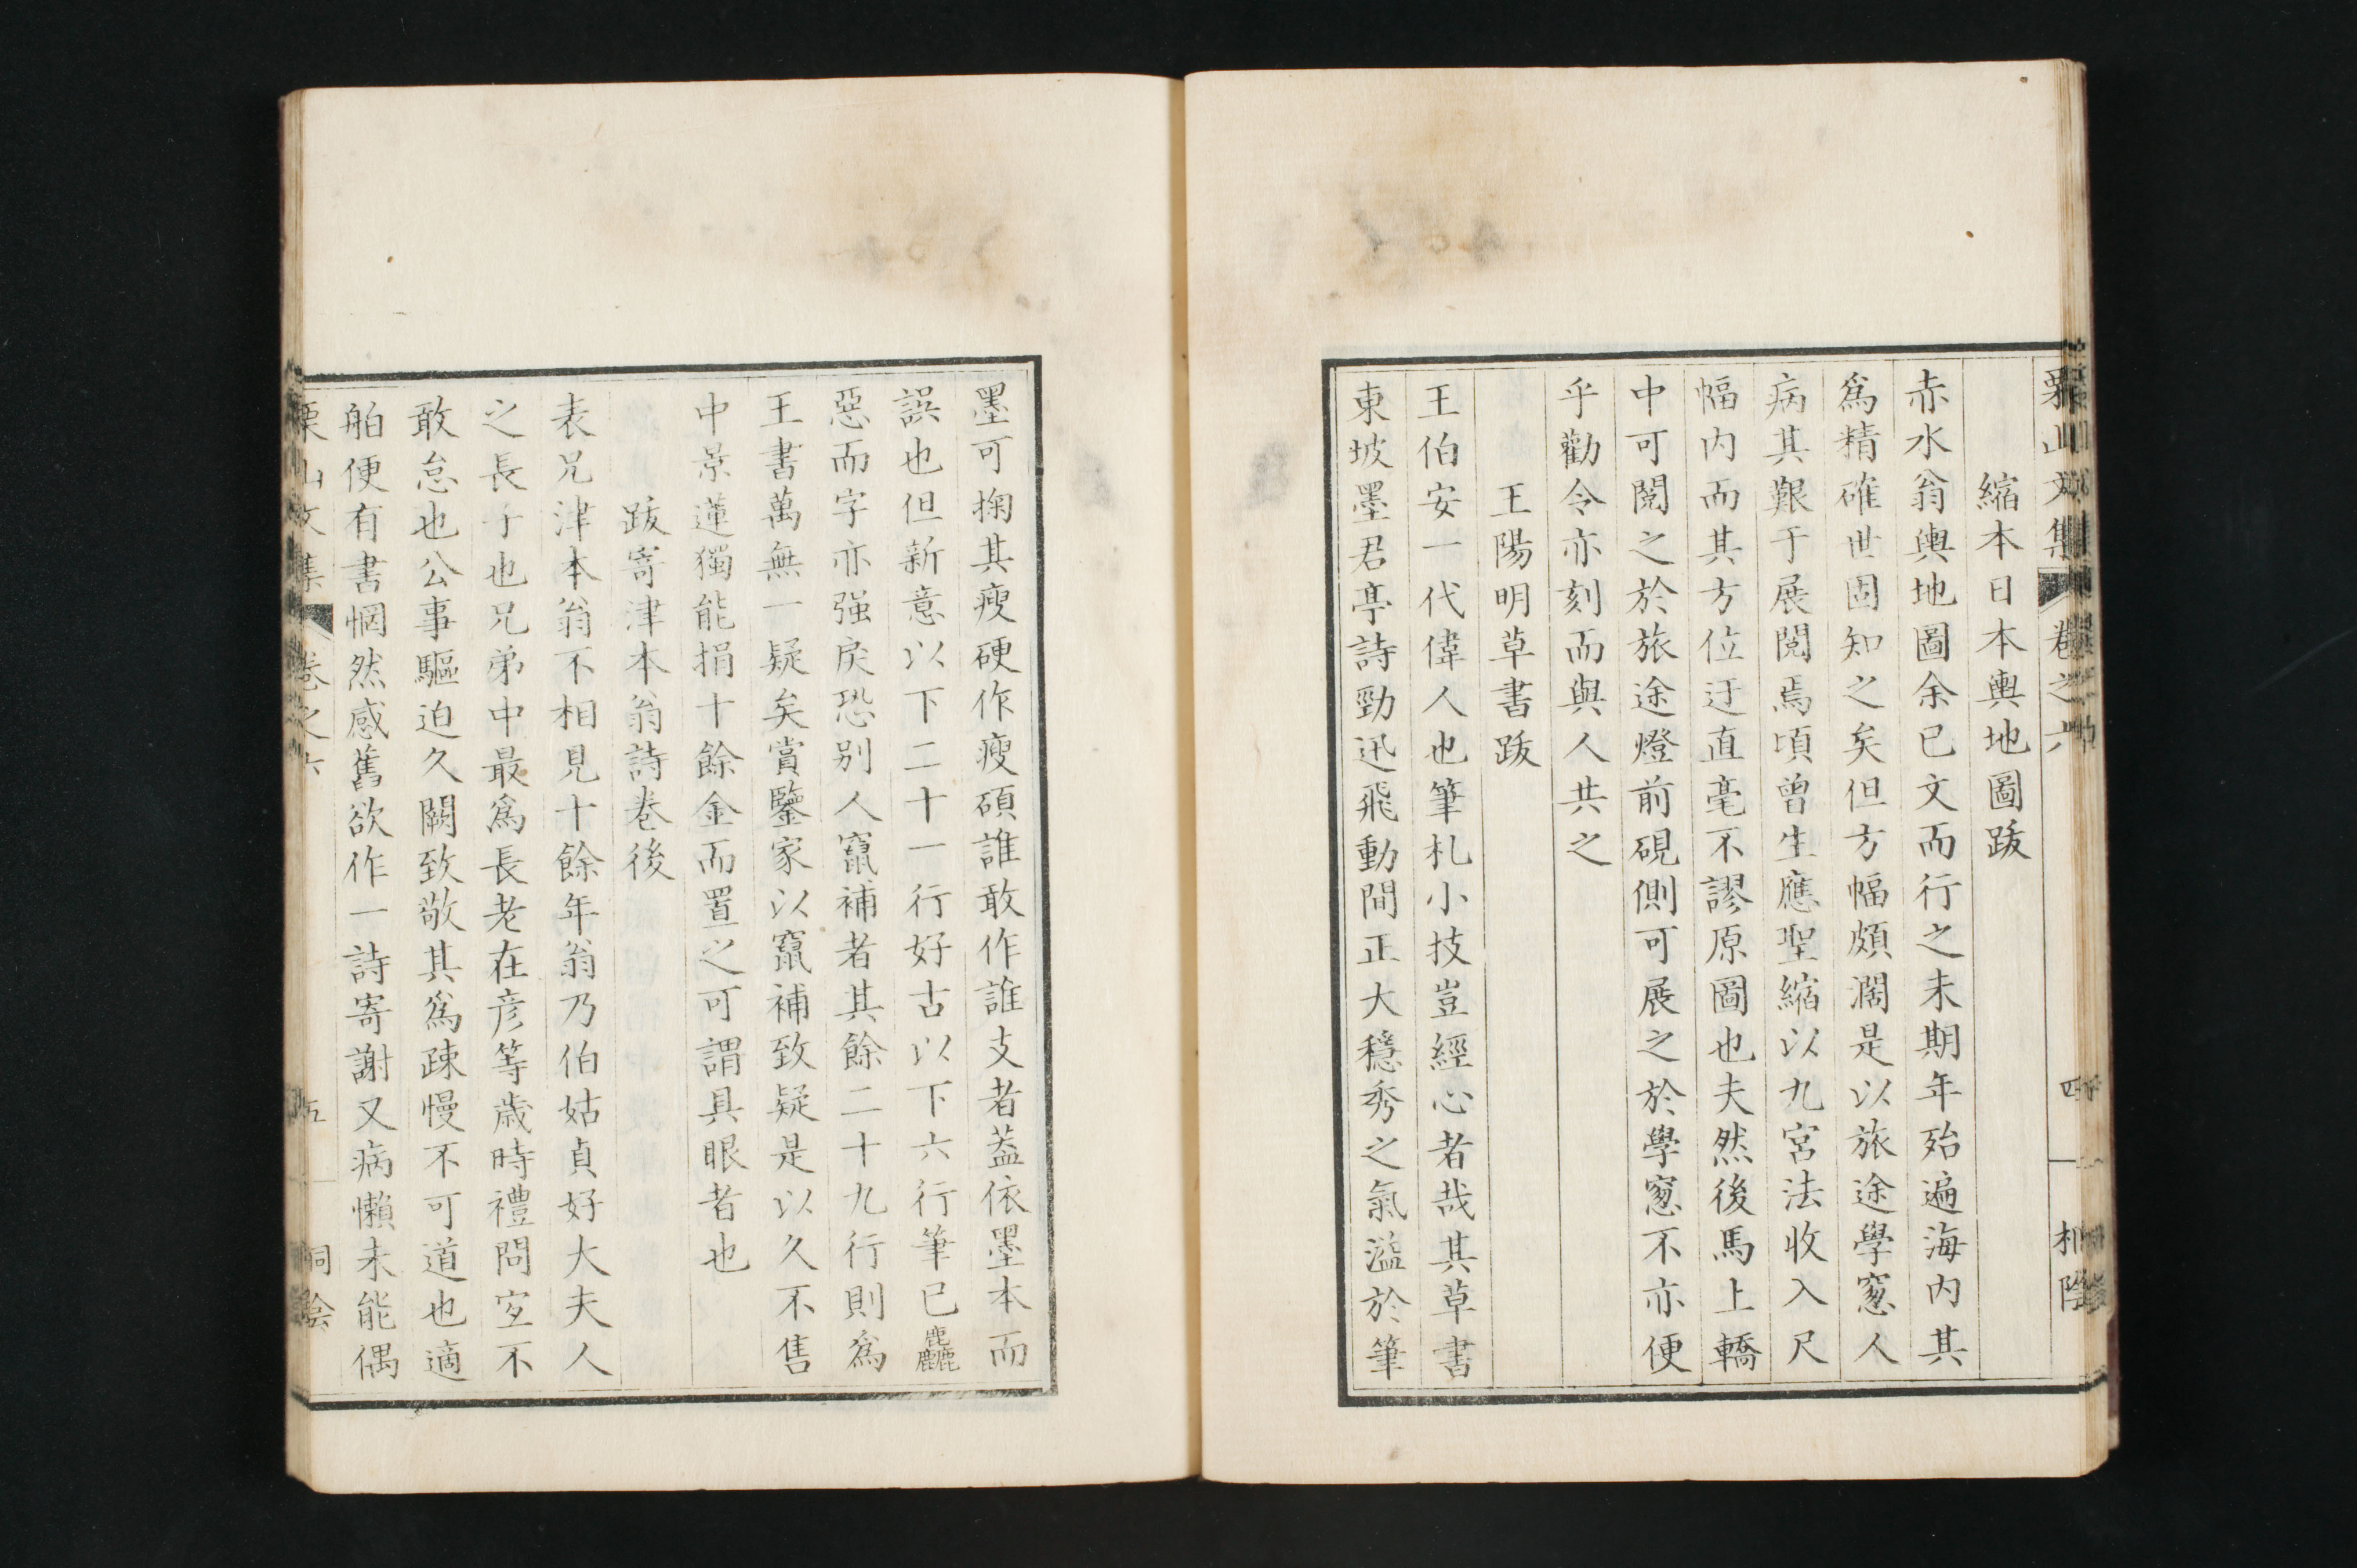 栗山文集 卷之六 四 桐陰
縮本日本輿地圖跋
赤水翁輿地圖余已文而行之未期年殆遍海內其
爲精確世固知之矣但方幅頗濶是以旅途學窻人
病其艱于展閱焉頃曾生應聖縮以九宮法收入尺
幅内而其方位迂直毫不謬原圖也夫然後馬上轎
中可閱之於旅途燈前硯側可展之於學窻不亦便
乎勸令亦刻而與人共之
王陽明草書跋
王伯安一代偉人也筆札小技豈經心者哉其草書
東坡墨君亭詩勁迅飛動間正大穩秀之氣溢於筆
墨可掬其瘦硬作瘦碩誰敢作誰支者蓋依墨本而
誤也但新意以下二十一行好古以下六行筆已麤
惡而字亦强戾恐别人竄補者其餘二十九行則爲
王書萬無一疑矣賞鑒家以竄補致疑是以久不售
中景蓮獨能捐十餘金而置之可謂具眼者也
跋寄津本翁詩卷後
表兄津本翁不相見十餘年翁乃伯姑貞好大夫人
之長子也兄弟中最爲長老在彦等歲時禮問宐不
敢怠也公事驅迫久闕致敬其爲疎慢不可道也適
舶便有書惘然感舊欲作一詩寄謝又病懶未能偶
栗山文集 卷之六 五 桐陰